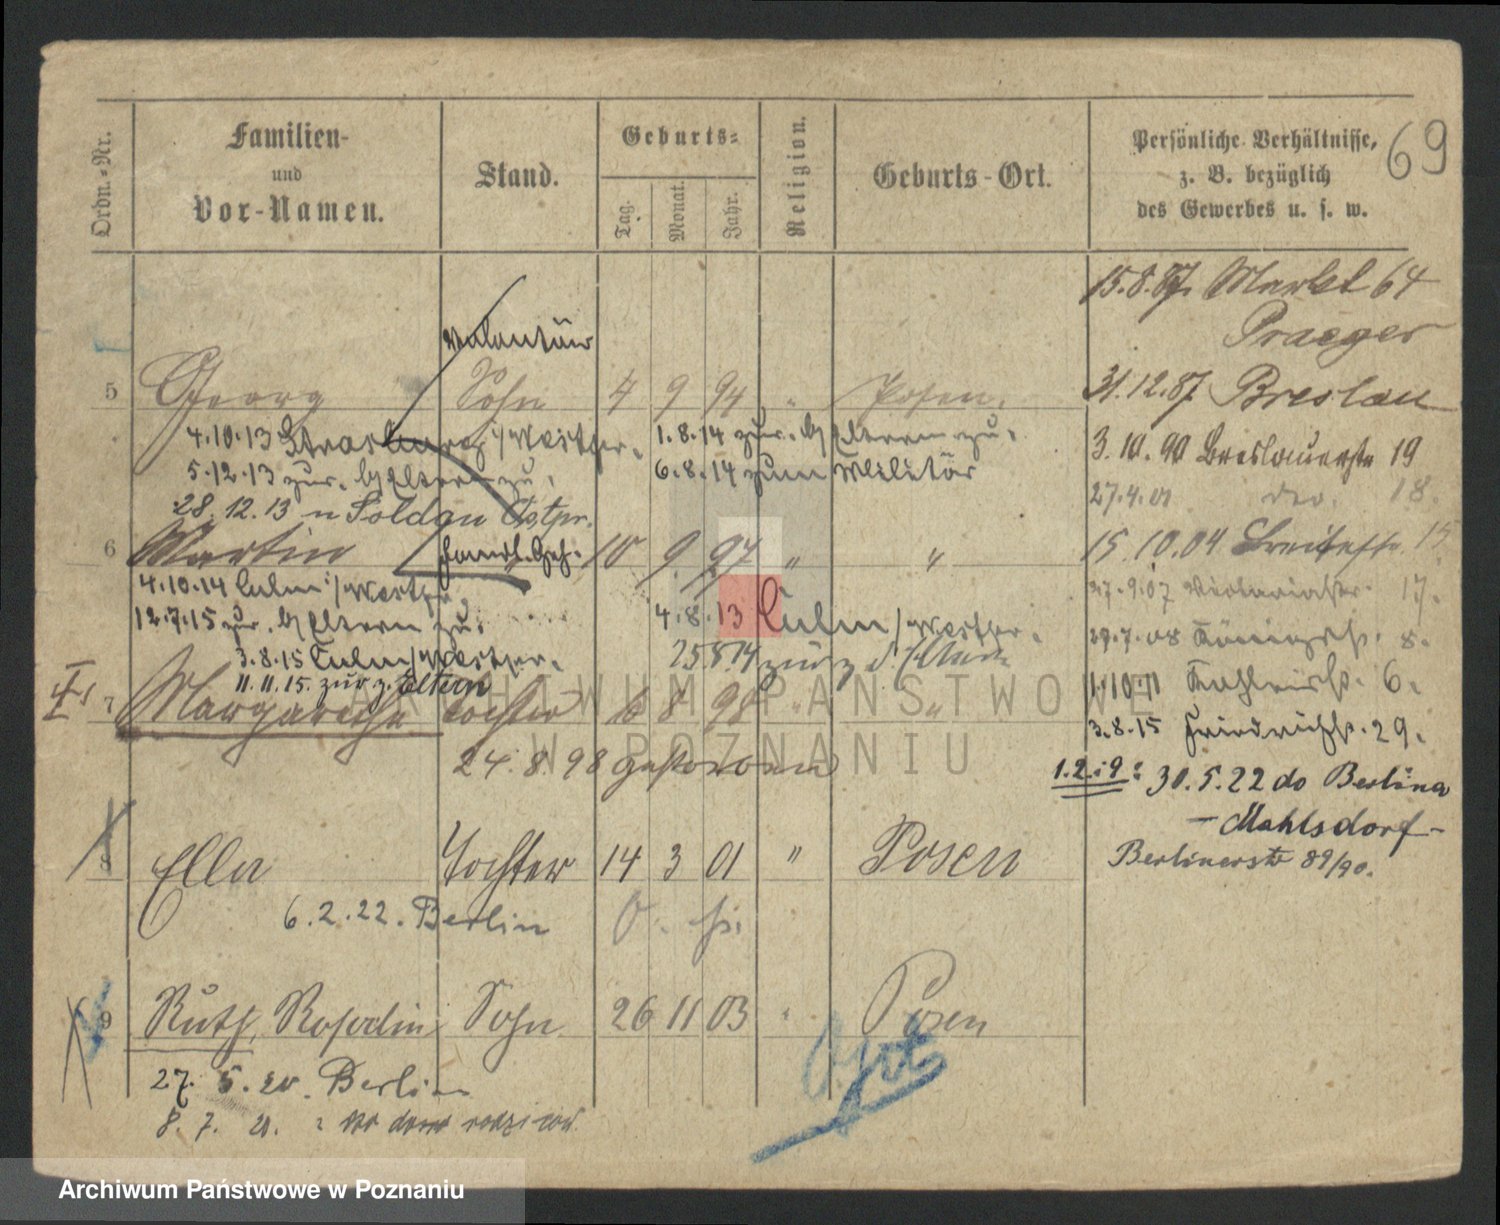 69
Ordn.-Nr.
Familien-
und
Vor-Namen.
Stand.
Geburts-
Tag.
Monat.
Jahr.
Religion.
Geburts-Ort.
Persönliche Verhältnisse,
z. B. bezüglich
des Gewerbes u. s. w.
15.8.87. Markt 64
Praeger
31.12.87 Breslau
3.10.90 Breslauerstr 19
27.4.01 do. 18.
15.10.04 Breitestr. 15
27.9.07 17.
29.7.08 Königstr. 8.
1.10.11 6.
3.8.15 Friedrichstr. 29.
1.2.i9: 30.5.22 do Berlina
- Mahlsdorf -
Berlinerstr 89/90.
Volontär
5 Georg Sohn 4 9 94 " Posen.
4.10.13 Strasburg /Westpr. 1.8.14 zur. b/Eltern zu.
5.12.13 zur. b/Eltern zu. 6.8.14 zum Militär
28.12.13 n Soldau Ostpr.
6 Martin Handl. Geh. 10 9. 97 " "
4.10.14 Culm /Westpr.
12.7.15 zur. b/Eltern zu. 4.8.13 Culm /Westpr.
3.8.15 Culm/Westpr. 25.8.14 zur z d. Eltern
11.11.15. zur z. Eltern
7 Margarethe Tochter 6 8 98 " "
24.8.98 gestorben
8 Ella Tochter 14 3 01 " Posen
6.2.22. Berlin
9 Ruth, Sohn 26 11 03 " Posen
27. 5. 20. Berlin
8. 7.
ARCHIWUM PAŃSTWOWE
W POZNANIU
Archiwum Państwowe w Poznaniu